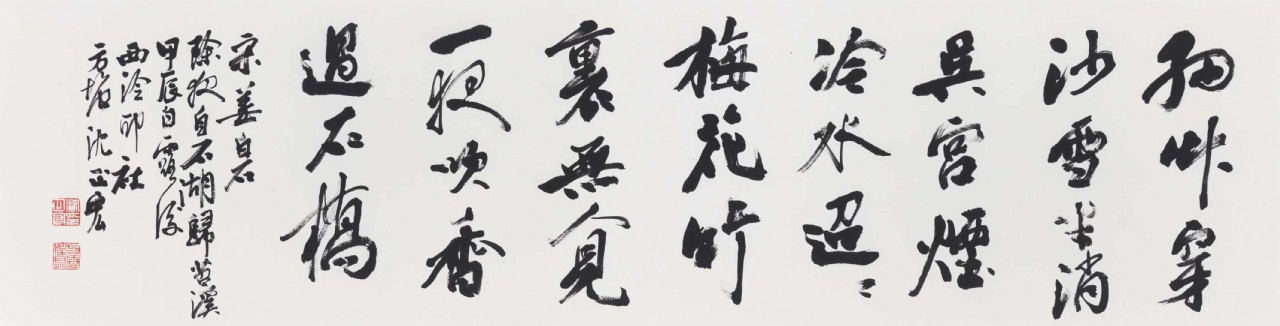 細艸穿
沙雪半消
吳宮煙
冷水迢〻
梅花竹
裏無人見
一夜吹香
過石橋
宋姜白石
除夜自石湖歸苕溪
甲辰白露後
西泠印社
沈正宏